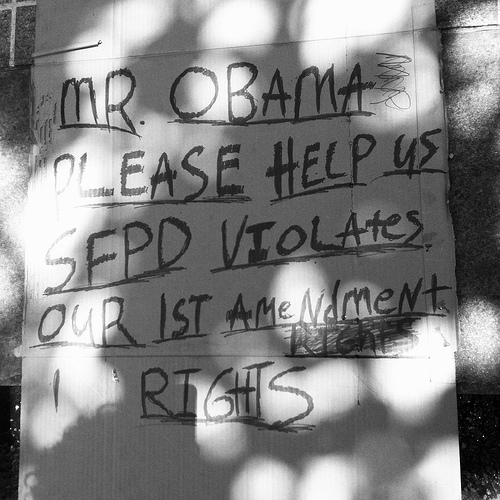 MR. OBAMA
PLEASE HELP US
SFPD VIOLATES
OUR 1ST AMENDMENT
RIGHTS
RIGHTS